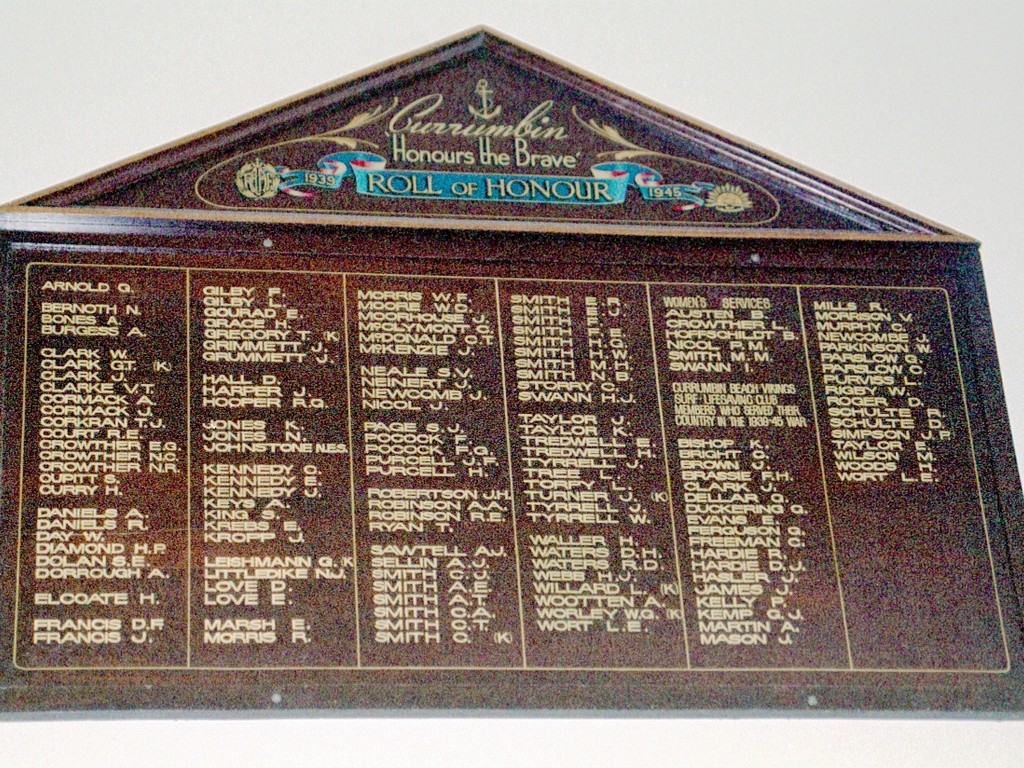 Currumbin
Honours the Brave
1939 ROLL OF HONOUR 1945
ARNOLD G.
BERNOTH N.
BURGESS A.
CLARK W.
CLARK G.T. (K)
CLARK J.
CLARKE V.T.
CORMACK A.
CORMACK J.
CORKRAN T.J.
COURT R.E.
CROWTHER E.G.
CROWTHER E.N.
CROWTHER N.R.
CUPITT S.
CURRY H.
DANIELS A.
DANIELS R.
DAY W.
DIAMOND H.P.
DOLAN S.E.
DORROUGH A.
ELCOATE H.
FRANCIS D.F.
FRANCIS J.
GILBY F.
GILBY L.
GOURAD E.
GRACE H.
GREGORY T. (K)
GRIMMETT J.
GRUMMETT J.
HALL D.
HARPER J.
HOOPER R.G.
JONES K.
JONES N.
JOHNSTONE N.E.S.
KENNEDY C.
KENNEDY E.
KENNEDY J.
KEYS A.
KING S.
KREBS E.
KROPP J.
LEISHMANN G. (K)
LITTLEDIKE N.J.
LOVE D.
LOVE E.
MARSH E.
MORRIS R.
MORRIS W.F.
MOORE W.G.
MOORHOUSE J.
McCLYMONT C.
McDONALD C.T.
McKENZIE J.
NEALE S.V.
NEINERT J.
NEWCOMB J.
NICOL J.
PAGE S.J.
POCOCK F.
POCOCK F.G.
POCOCK J.P.
PURCELL H.
ROBERTSON J.H.
ROBINSON A.A.
ROBINSON R.E.
RYAN T.
SAWTELL A.J.
SELLIN A.J.
SMITH C.J.
SMITH A.E.
SMITH A.T.
SMITH C.A.
SMITH C.T.
SMITH G. (K)
SMITH E.R.
SMITH E.J.
SMITH F.
SMITH F.G.
SMITH H.B.
SMITH H.W.
SMITH M.H.
SMITH N.B.
STORRY C.
SWANN H.J.
TAYLOR J.
TAYLOR K.
TREDWELL E.
TREDWELL H.
TYRRELL J.
TORPY L.
TURNER J. (K)
TYRRELL J.
TYRRELL W.
WALLER H.
WATERS D.H.
WATERS R.D.
WEBB H.J.
WILLARD L. (K)
WOOTTEN A.
WORLEY W.G. (K)
WORT L.E.
WOMEN'S SERVICES
AUSTEN B.
CROWTHER L.
HOCHOLDT B.
NICOL P.W.
SMITH M.M.
SWANN I.
CURRUMBIN BEACH VIKINGS
SURF LIFESAVING CLUB
MEMBERS WHO SERVED THEIR
COUNTRY IN THE 1939-45 WAR
BISHOP K.
BRIGHT C.
BROWN J.
BRASSIE F.H.
CLARK J.
DELLAR G.
DUCKERING G.
EVANS E.
FERGUSON G.
FREEMAN C.
HARDIE R.
HARDIE D.J.
HASLER J.
JAMES J.
KELLY F.
KEMP G.J.
MARTIN A.
MASON J.
MILLS R.
MORRISON V.
MURPHY C.
NEWCOMBE J.
PARKINSON W.
PARSLOW G.
PARSLOW C.
PURVISS L.
RIGBY W.
ROGER D.
SCHULTE R.
SCHULTE D.
SIMPSON J.P.
WILSON M.
WOODS H.
WORT L.E.